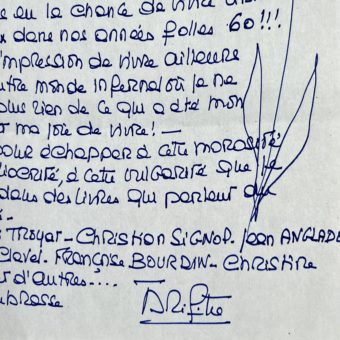 e eu la chance de vivre
dans nos années folles 60!!!
'impression de vivre ailleurs
utre monde infernal où je ne
plus rien de ce qui a été mon
ma joie de vivre! —
pour échapper à cette morosité
diocrité, à cette vulgarité que je
dans des livres qui parlent de
Troyat - Christian SIGNOL. Jean ANGLADE
Clavel. Françoise BOURDIN - Christine
d'autres....
brasse